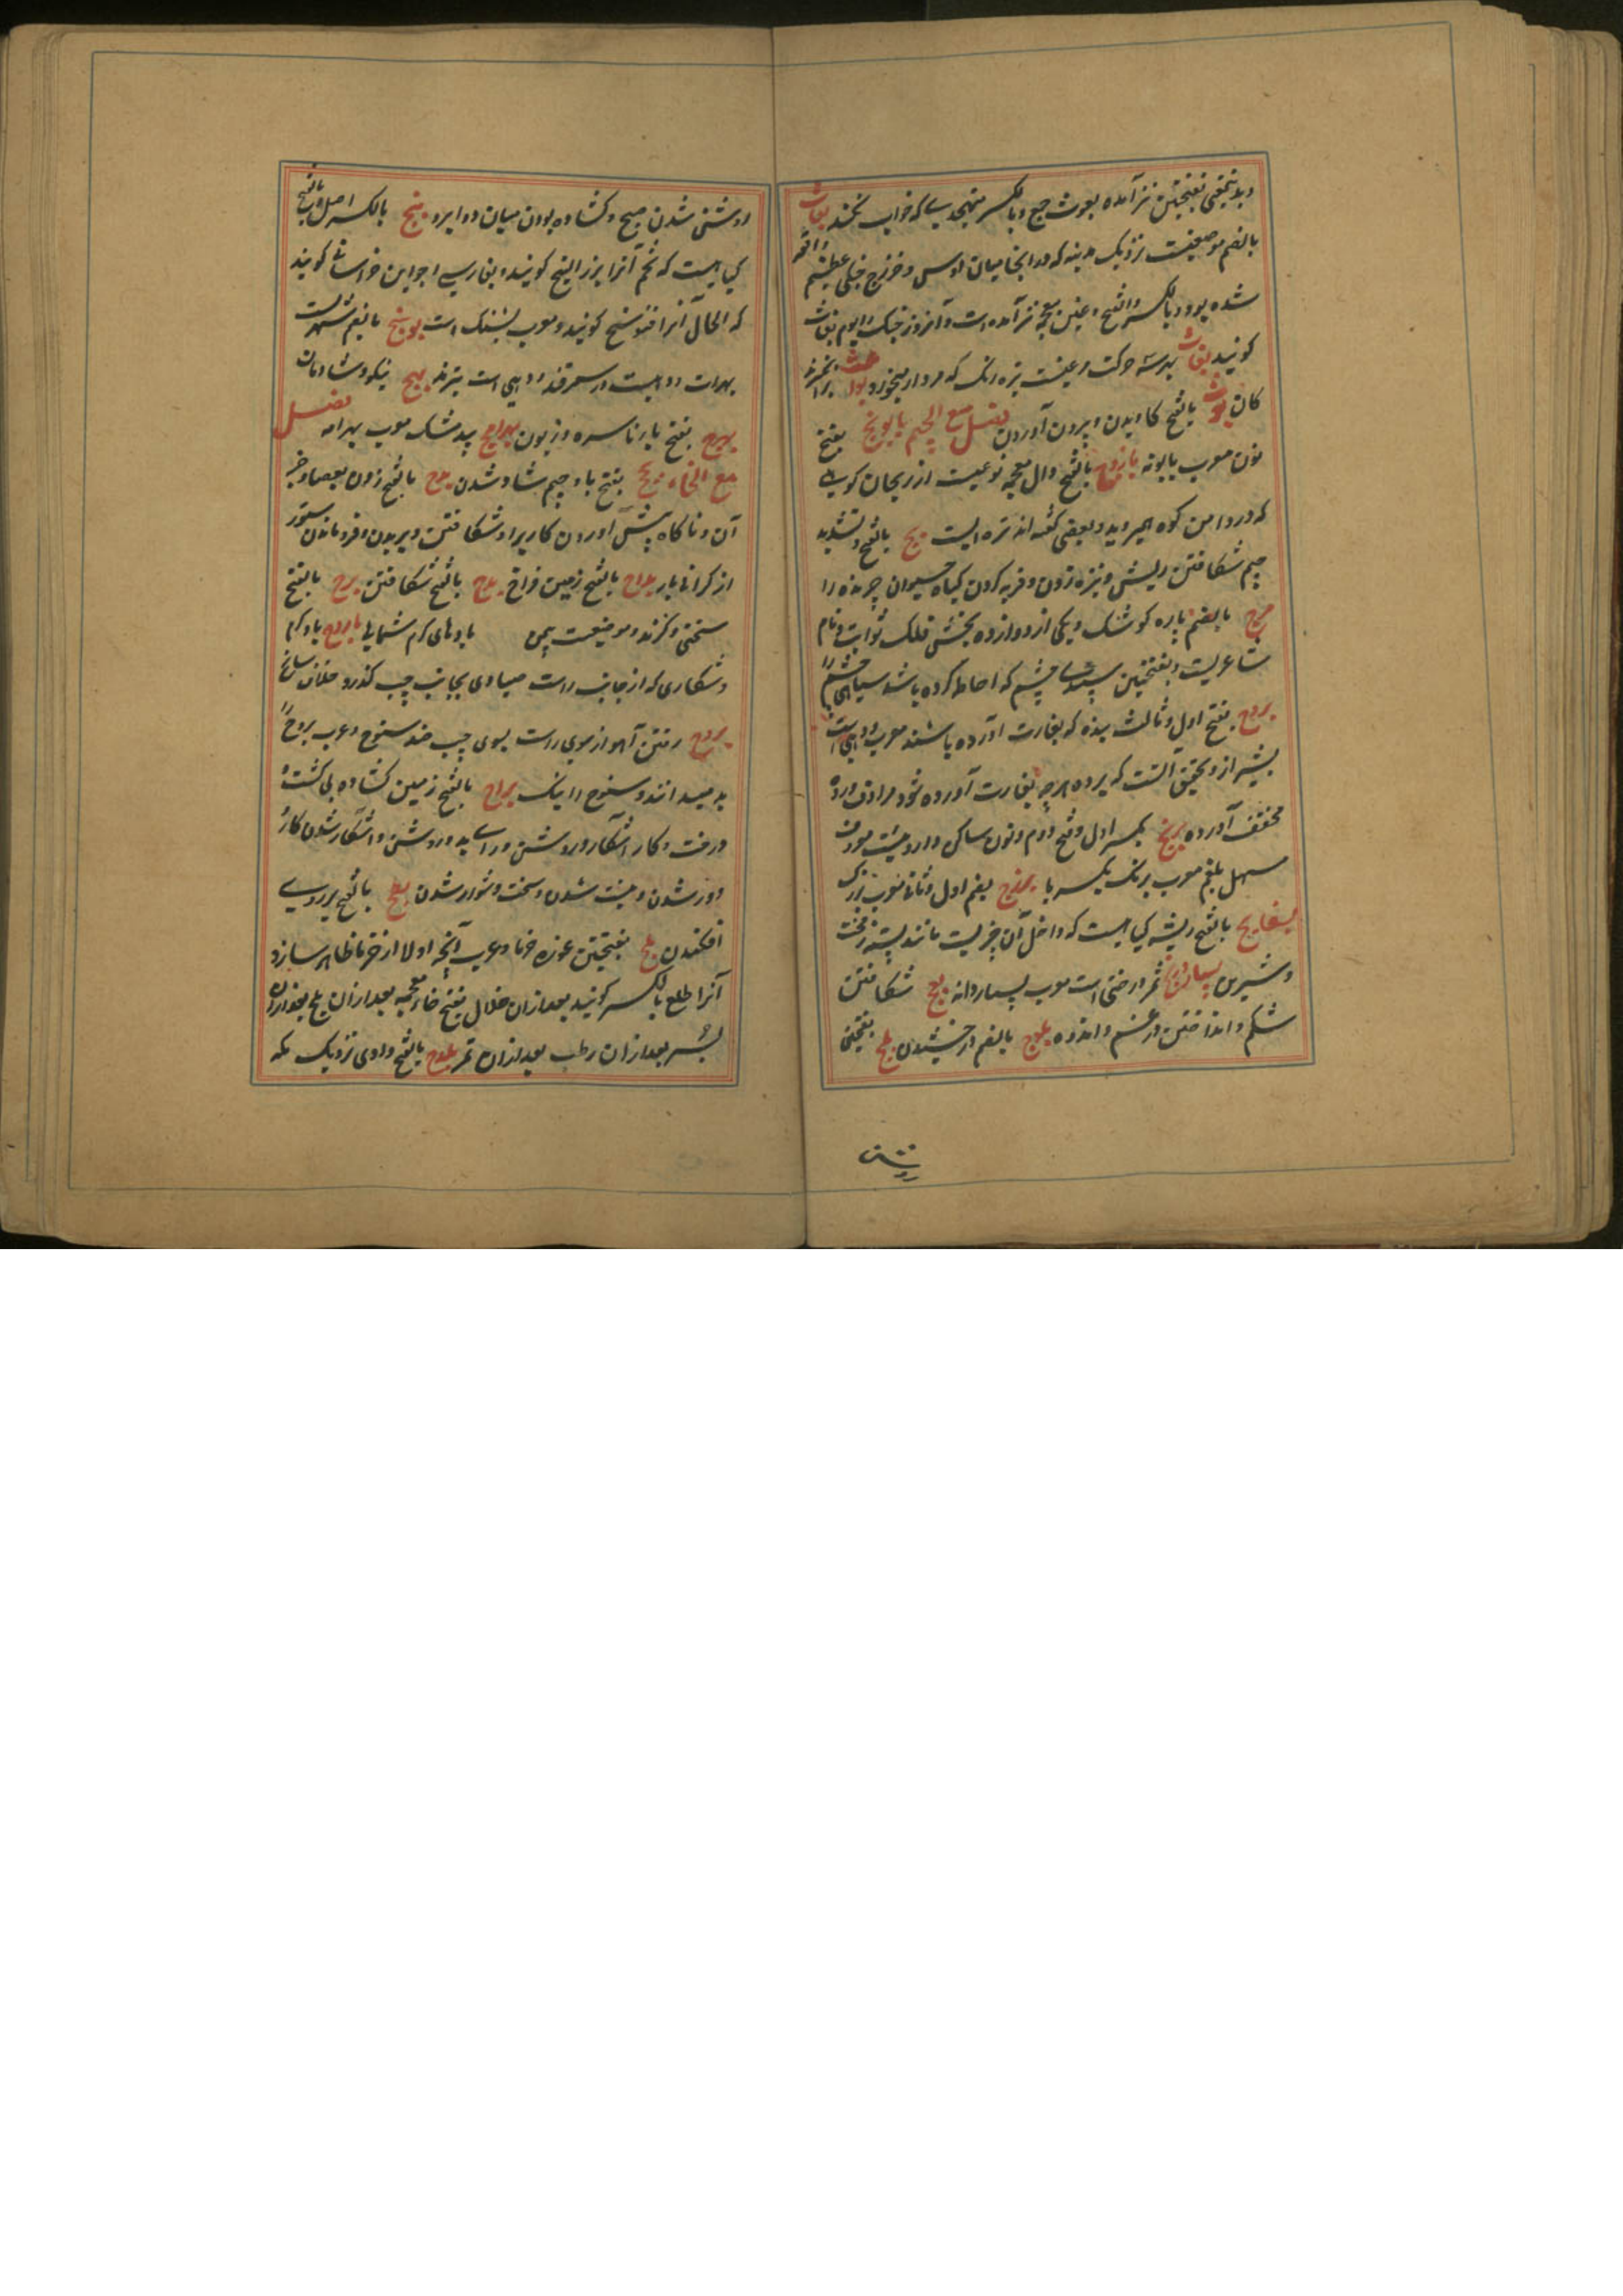 و بدینمعنی بفتحتین نیز آمده بعوث جمع و بالکسر متهجدی که خواب نکند بعاث
بالضم موضعیست نزدیک مدینه که در آنجا میان اوس و خزرج جنگی عظیم واقع
شده بود و بالکسر و الفتح و غین معجمه نیز آمده است و آنروز جنگ را یوم بغاث
کویند بغاث بهرسه حرکت مرغیست تیره رنک که مردار میخورد
کان بوث بالفتح کاویدن و بیرون آوردن فصل مع الجیم بابونج بفتح
نون معرب بابونه باذروج بالفتح و ذال معجمه نوعیست از ریحان کوهی
که در دامن کوه میروید و بعضی گفته اند تره ایست بج بالفتح و تشدید
جیم شکافتن ریش و نیزه زدن و فربه کردن کیاه حیوان چرنده را
برج بالضم باره کوشک و یکی از دوازده بخش فلک ثوابت و نام
شاعریست و بفتحتین سپیدی چشم که احاطه کرده باشد سیاهی چشم را
بردج بفتح اول و ثالث برده که بغارت آورده باشند معرب
بشیراز و تحقیق آنست که برده هر چه بغارت آورده شود مرادف ورده
مخفف آورده برنج بکسر اول و فتح دوم و نون ساکن داروئیست معروف
مسهل بلغم معرب برنک بکسر با بزرج بضم اول و ثانی معرب بزرک
بسفایج بالفتح ریشه کیاهیست که داخل آن چیزیست مانند پسته زمخت
و شیرین بسباردانج ثمر درختی است معرب بسیار دانه بعج شکافتن
شکم و انداختن در غم و اندوه بلوج بالضم درخشیدن بلج بفتحتین
روشن
روشنی شدن صبح و کشاده بودن میان دو ابرو بنج بالکسر اصل و بالفتح
کیاهیست که تخم آنرا بزر البنج کویند و بفارسی اجواین خراسانی کویند
که الحال آنرا کویند و معرب بنک است بوشنج بالضم شهریست
بهرات و دهیست در سمرقند و دهی است بترمذ بهج نیکو و شادمان
بهرج بفتح با و را ناسره و زبون بهرامج بیدمشک معرب بهرامه فصل
مع الحاء بجح بفتح با و جیم شاد شدن بدح بالفتح زدن بعصا و جز
آن و ناکاه پیش آوردن کاریرا و شکافتن و بریدن و فرو ماندن ستور
از کرانی بار بداح بالفتح زمین فراخ بذح بالفتح شکافتن برح بالفتح
سختی و کزند و موضعیست بیمن بادهای کرم شمالی بارح باد کرم
و شکاری که از جانب راست صیاد بجانب چپ کذرد خلاف سانح
بروح رفتن آهو از سوی راست بسوی چپ ضد سنوح و عرب بروح را
بد میدانند و سنوح را نیک براح بالفتح زمین کشاده بی کشت و
درخت و کار آشکار و روشن و رای بد و روشن و آشکار شدن کار
دور شدن و نیست شدن و سخت و دشوار شدن بطح بالفتح بر روی
افکندن بلح بفتحتین غوره خرما و عرب آنچه اولا از خرما ظاهر سازد
آنرا طلع بالکسر کویند بعد از آن خلال بفتح خاء معجمه بعد از آن بلح بعد از آن
بسر بعد از آن رطب بعد از آن تمر بلدح بالفتح وادی نزدیک مکه